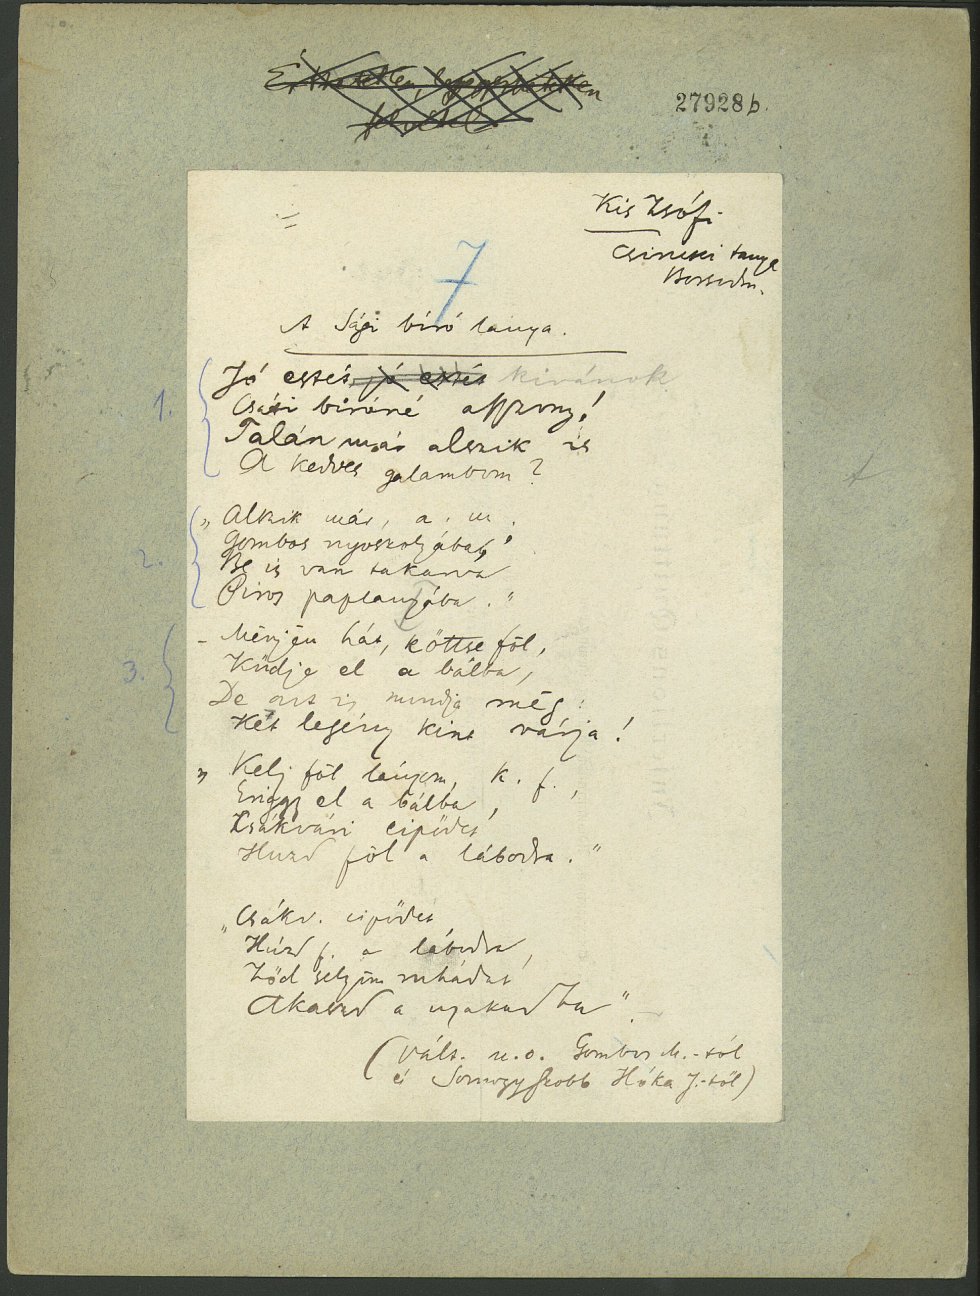 27928b.
Kis Zsófi
Csincsei tanya
Borsodm.
7
A Sági biró lánya.
1. Jó estét, jó estét kivánok
Csáti biróné asszony!
Talán már alszik is
A kedves galambom?
2. „Alszik már, a. m.
Gombos nyoszolyába,
Be is van takarva
Piros paplanjába."
3. – Mënjën hát, költse föl,
Küdje el a bálba,
De azt is mondja még:
Két legény kint várja!
„Kelj föl lányom, k. f.,
Eriggy el a bálba,
Zsákvári cipődet
Huzd föl a lábodra."
„Csákv. cipődet
Húzd f. a lábodra,
Zöd selyëm ruhádat
Akaszd a nyakadba".
(Vált. u.o. Gombos M.-tól
és Somogyszobb Hóka J.-től)